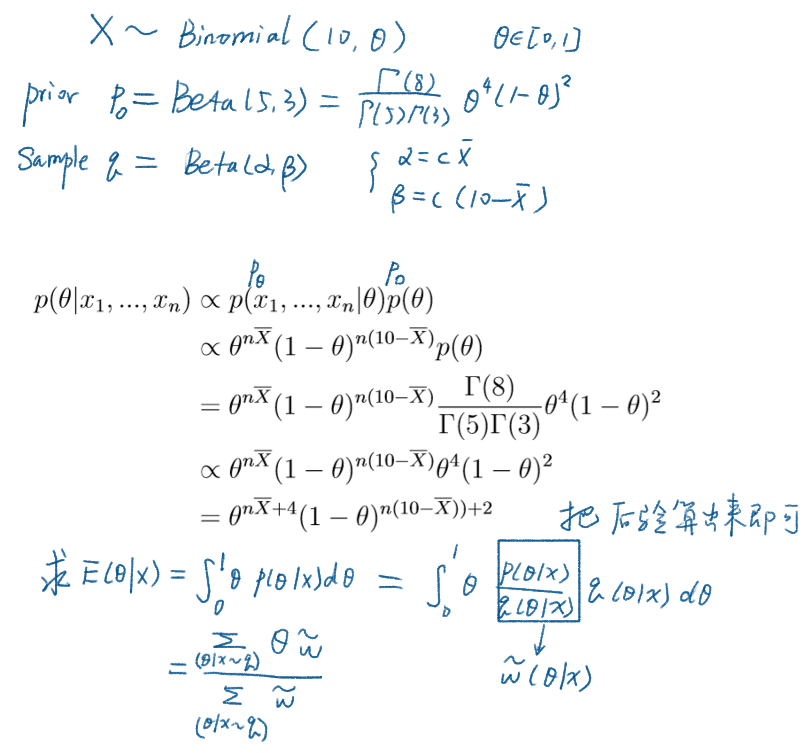 X ~ Binomial (10, θ)    θ∈[0,1]
prior p₀ = Beta(5,3) = Γ(8)/Γ(5)Γ(3) θ⁴(1-θ)²
Sample q = Beta(α,β)  { α = c X̄
β = c (10-X̄)
pθ    p₀
p(θ|x₁, ..., xₙ) ∝ p(x₁, ..., xₙ|θ)p(θ)
∝ θ^{nX̄}(1 − θ)^{n(10−X̄)}p(θ)
= θ^{nX̄}(1 − θ)^{n(10−X̄)} Γ(8)/Γ(5)Γ(3) θ⁴(1 − θ)²
∝ θ^{nX̄}(1 − θ)^{n(10−X̄)}θ⁴(1 − θ)²
= θ^{nX̄+4}(1 − θ)^{n(10−X̄))+2}
把后验算出来即可
求 E(θ|x) = ∫₀¹ θ p(θ|x)dθ = ∫₀¹ θ p(θ|x)/q(θ|x) q(θ|x) dθ
= Σ_{(θ|x~q)} θ w̃ / Σ_{(θ|x~q)} w̃
w̃(θ|x)